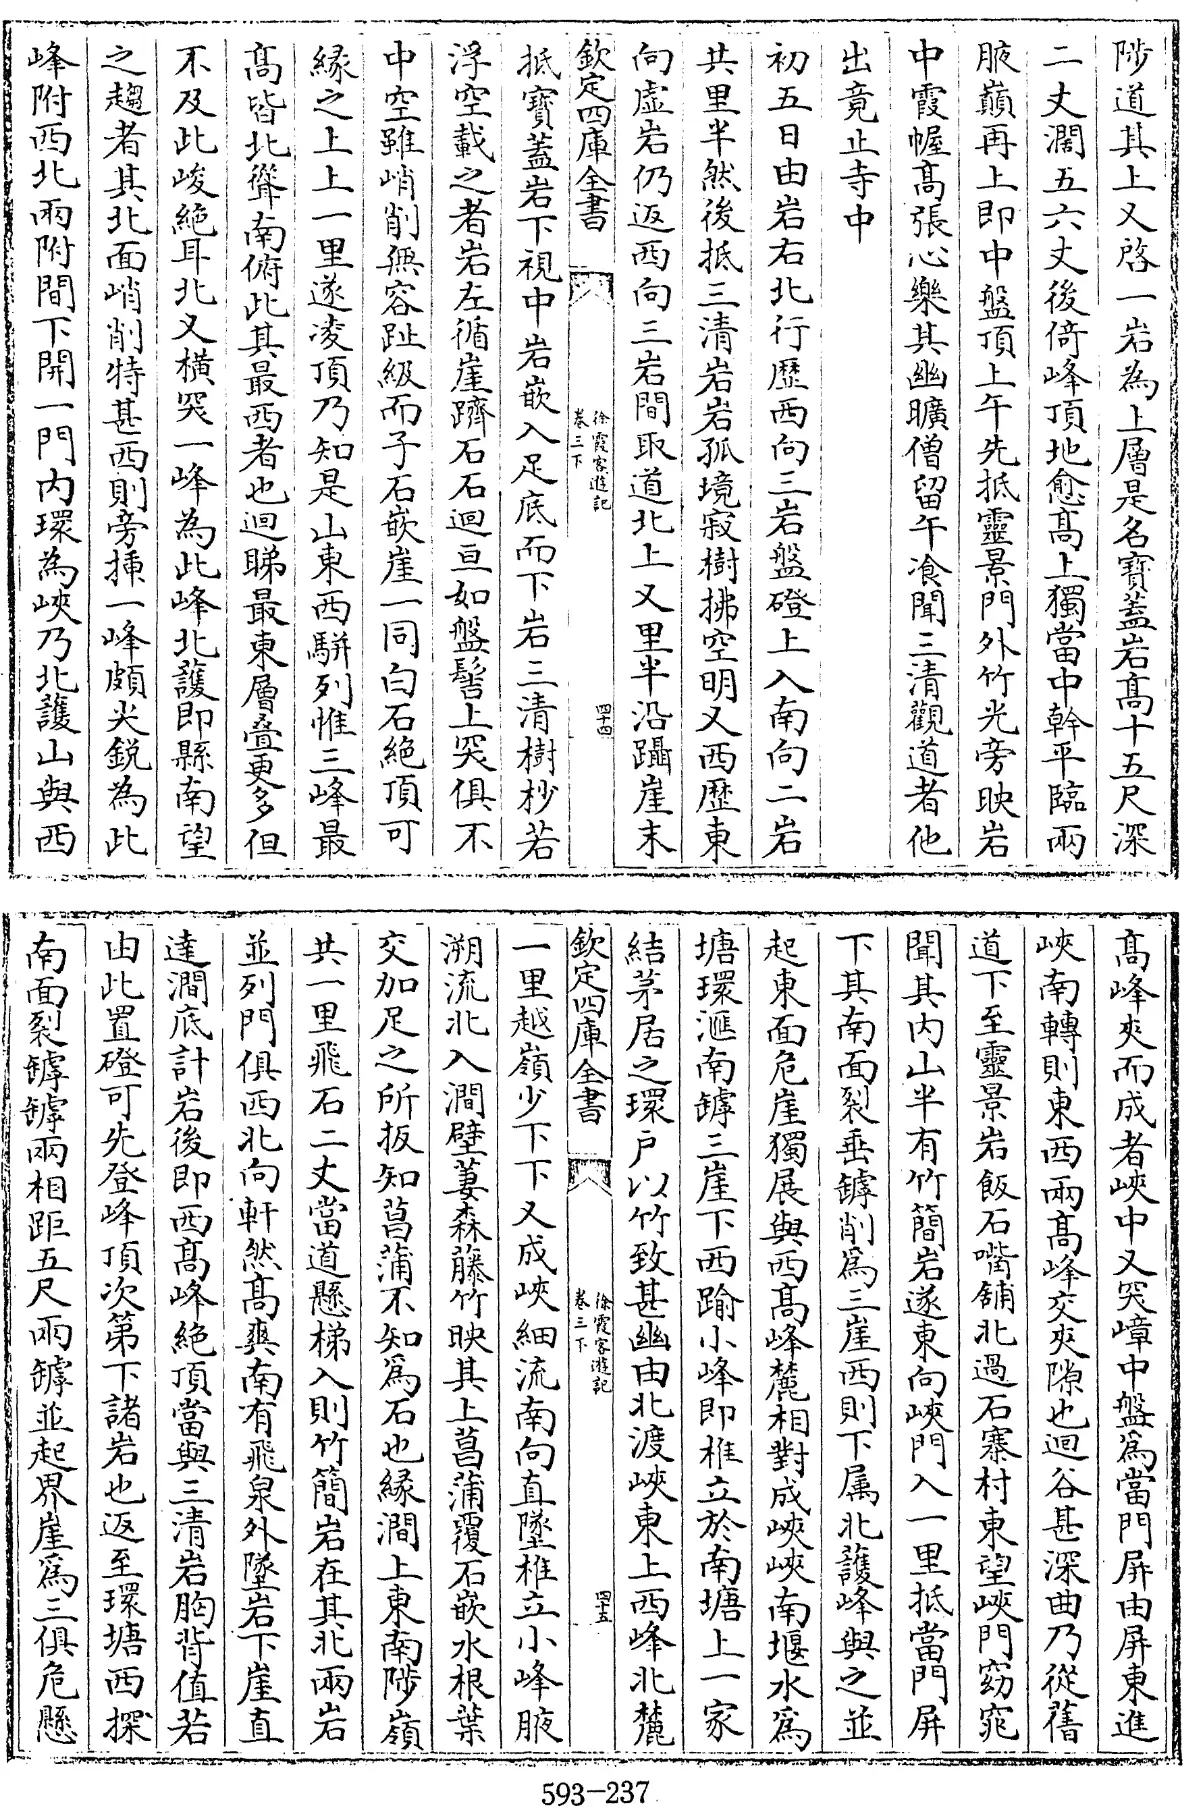 陟道其上又啓一岩為上層是名寶蓋岩髙十五尺深
二丈濶五六丈後倚峰頂地愈髙上獨當中幹平臨兩
腋巔再上即中盤頂上午先抵靈景門外竹光旁映岩
中霞幄髙張心樂其幽曠僧留午飡聞三清觀道者他
出竟止寺中
初五日由岩右北行歴西向三岩盤磴上入南向二岩
共里半然後抵三清岩岩孤境寂樹拂空明又西歴東
向虛岩仍返西向三岩間取道北上又里半沿躡崖末
欽定四庫全書
徐霞客遊記
卷三下
四十四
抵寶蓋岩下視中岩嵌入足底而下岩三清樹杪若
浮空載之者岩左循崖躋石石迴亘如盤髻上突俱不
中空雖峭削無容趾級而子石嵌崖一同白石絶頂可
緣之上上一里遂凌頂乃知是山東西駢列惟三峰最
髙皆北聳南俯此其最西者也迴睇最東層叠更多但
不及此峻絶耳北又横突一峰為此峰北護即縣南望
之趨者其北面峭削特甚西則旁揷一峰頗尖鋭為此
峰附西北兩附間下開一門内環為峽乃北護山與西
髙峰夾而成者峽中又突嶂中盤爲當門屏由屏東進
峽南轉則東西兩髙峰交夾隙也迴谷甚深曲乃從舊
道下至靈景岩飯石嘴舖北過石寨村東望峽門窈窕
聞其内山半有竹簡岩遂東向峽門入一里抵當門屏
下其南面裂垂罅削爲三崖西則下属北護峰與之並
起東面危崖獨展與西髙峰麓相對成峽峽南堰水爲
塘環滙南罅三崖下西踰小峰即椎立於南塘上一家
結茅居之環户以竹致甚幽由北渡峽東上西峰北麓
欽定四庫全書
徐霞客遊記
卷三下
四十五
一里越嶺少下下又成峽細流南向直墜椎立小峰腋
溯流北入澗壁萋森藤竹映其上菖蒲覆石嵌水根葉
交加足之所扳知菖蒲不知爲石也緣澗上東南陟嶺
共一里飛石二丈當道懸梯入則竹簡岩在其北兩岩
並列門俱西北向軒然髙爽南有飛泉外墜岩下崖直
達澗底計岩後即西髙峰絶頂當與三清岩胸背值若
由此置磴可先登峰頂次第下諸岩也返至環塘西探
南面裂罅罅兩相距五尺兩罅並起界崖爲三俱危懸
593-237